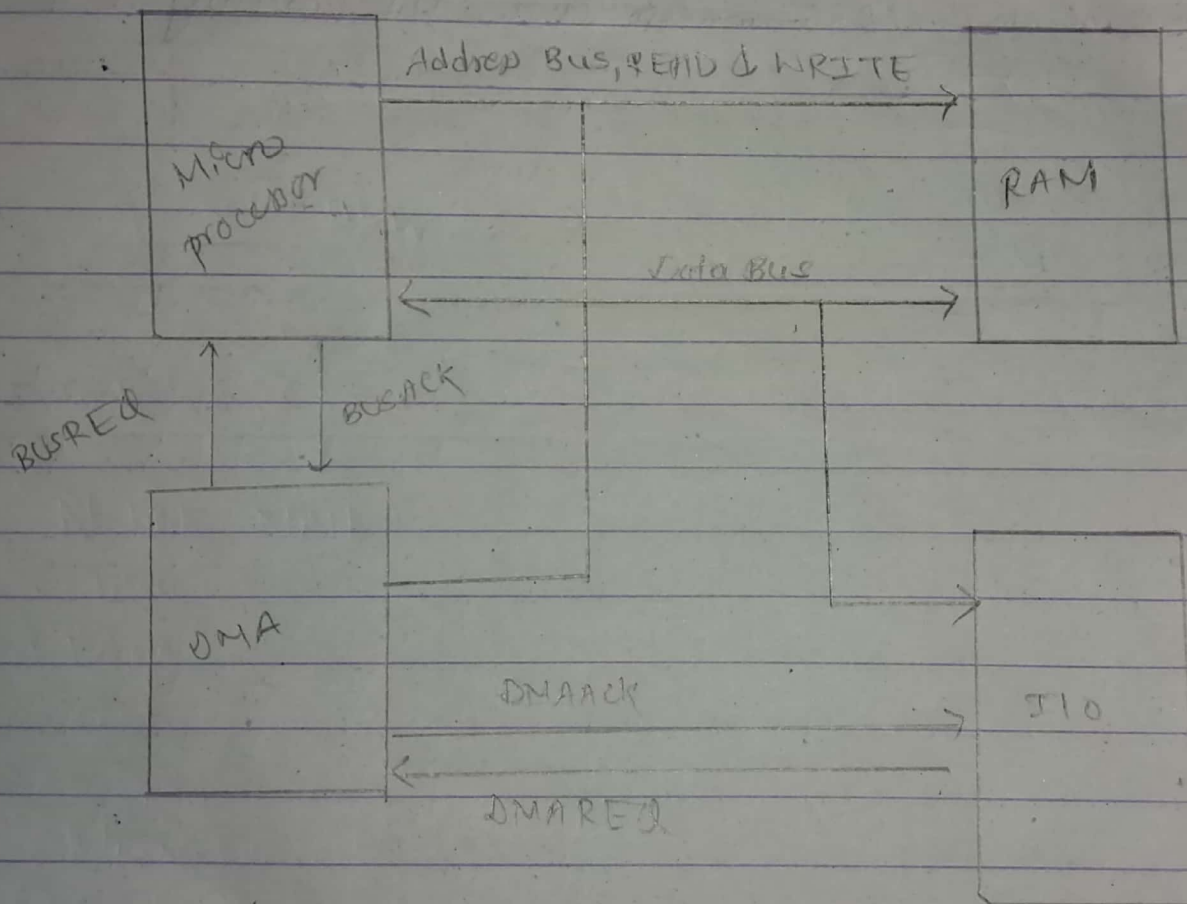 Address Bus, READ & WRITE
Micro
processor
RAM
Data Bus
BUSREQ
BUSACK
DMA
DMAACK
I/O
DMAREQ